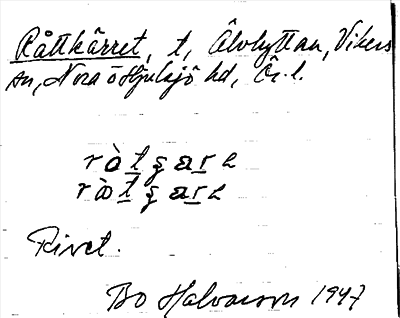 Råttkärret, t, Älvhyttan, Vikers
sn, Nora o Hjulsjö hd, Ör. l.
ròtʂarɘ
Rivet.
Bo Halvarson 1947